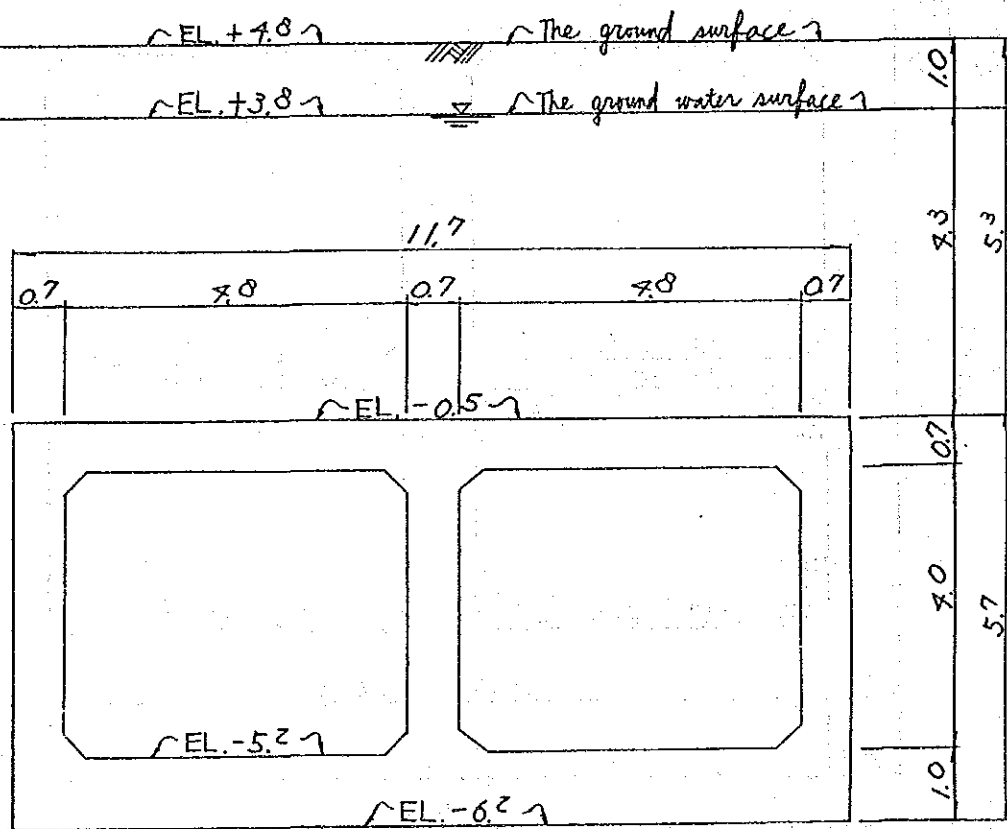 EL. +4.8 The ground surface
1.0
EL. +3.8 The ground water surface
4.3
5.3
11.7
0.7 4.8 0.7 4.8 0.7
EL. -0.5
0.7
4.0
5.7
EL. -5.2
1.0
EL. -6.2